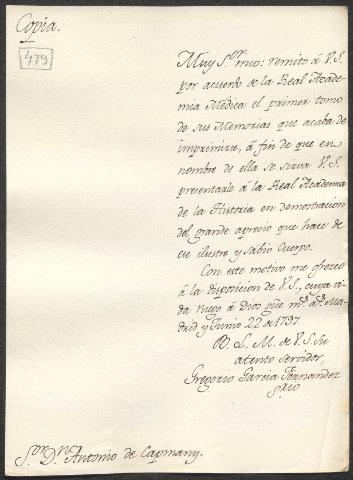 Copia.
479
Muy S.or mio: remito á V.S.
por acuerdo de la Real Acade-
mia Médica el primer tomo
de sus Memorias que acaba de
imprimirse, á fin de que en
nombre de ella se sirva V.S.
presentarle á la Real Academia
de la Historia en demostracion
del grande aprecio que hace de
ese ilustre y sabio Cuerpo.
Con este motivo me ofrezco
á la disposicion de V.S., cuya vi-
da ruego á Dios güe m.s a.s Ma-
drid y Junio 22 de 1797.
B. L. M. de V.S. su
atento servidor,
Gregorio Garcia Fernandez
S.rio
S.or D.n Antonio de Capmany.